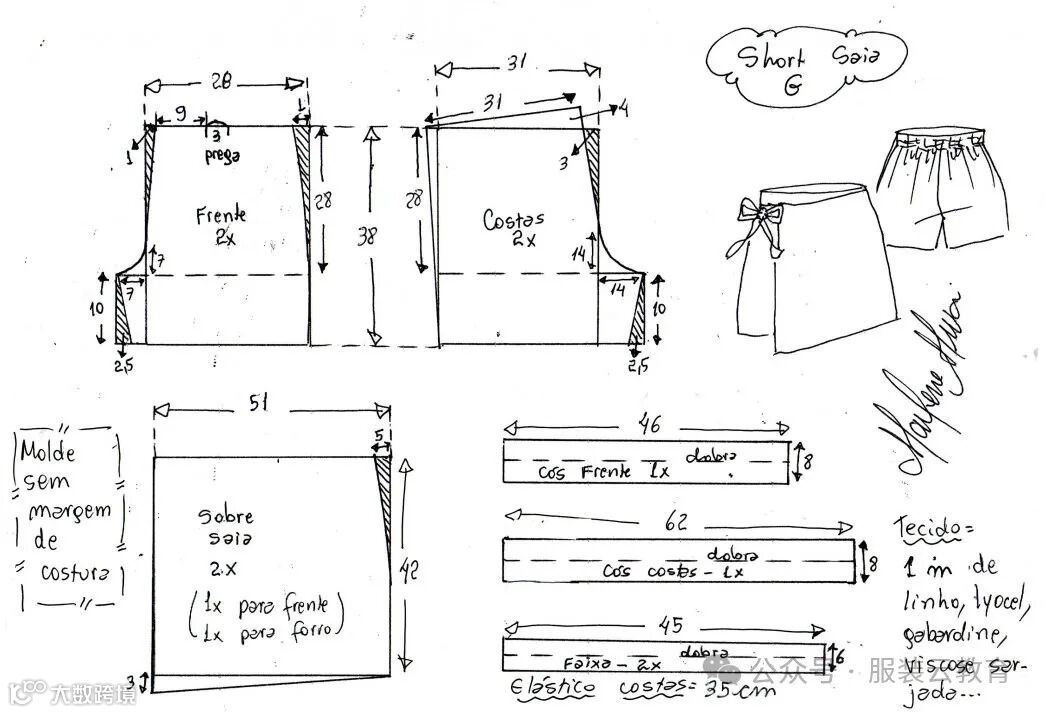 Short Saia
G
28
9
1
3
prega
1
28
Frente
2x
7
7
10
2,5
38
31
31
4
3
28
Costas
2x
14
14
10
2,5
51
5
Molde
sem
margem
de
costura
Sobre
saia
2x
(1x para frente
1x para forro)
42
3
46
dobra
Cos Frente 1x
8
62
dobra
Cos costas - 1x
8
45
dobra
Faixa - 2x
6
Elástico costas = 35 cm
Tecido =
1 m de
linho, lyocel,
gabardine,
viscose sar-
jada...
公众号 · 服装云教育
10100 大数跨境